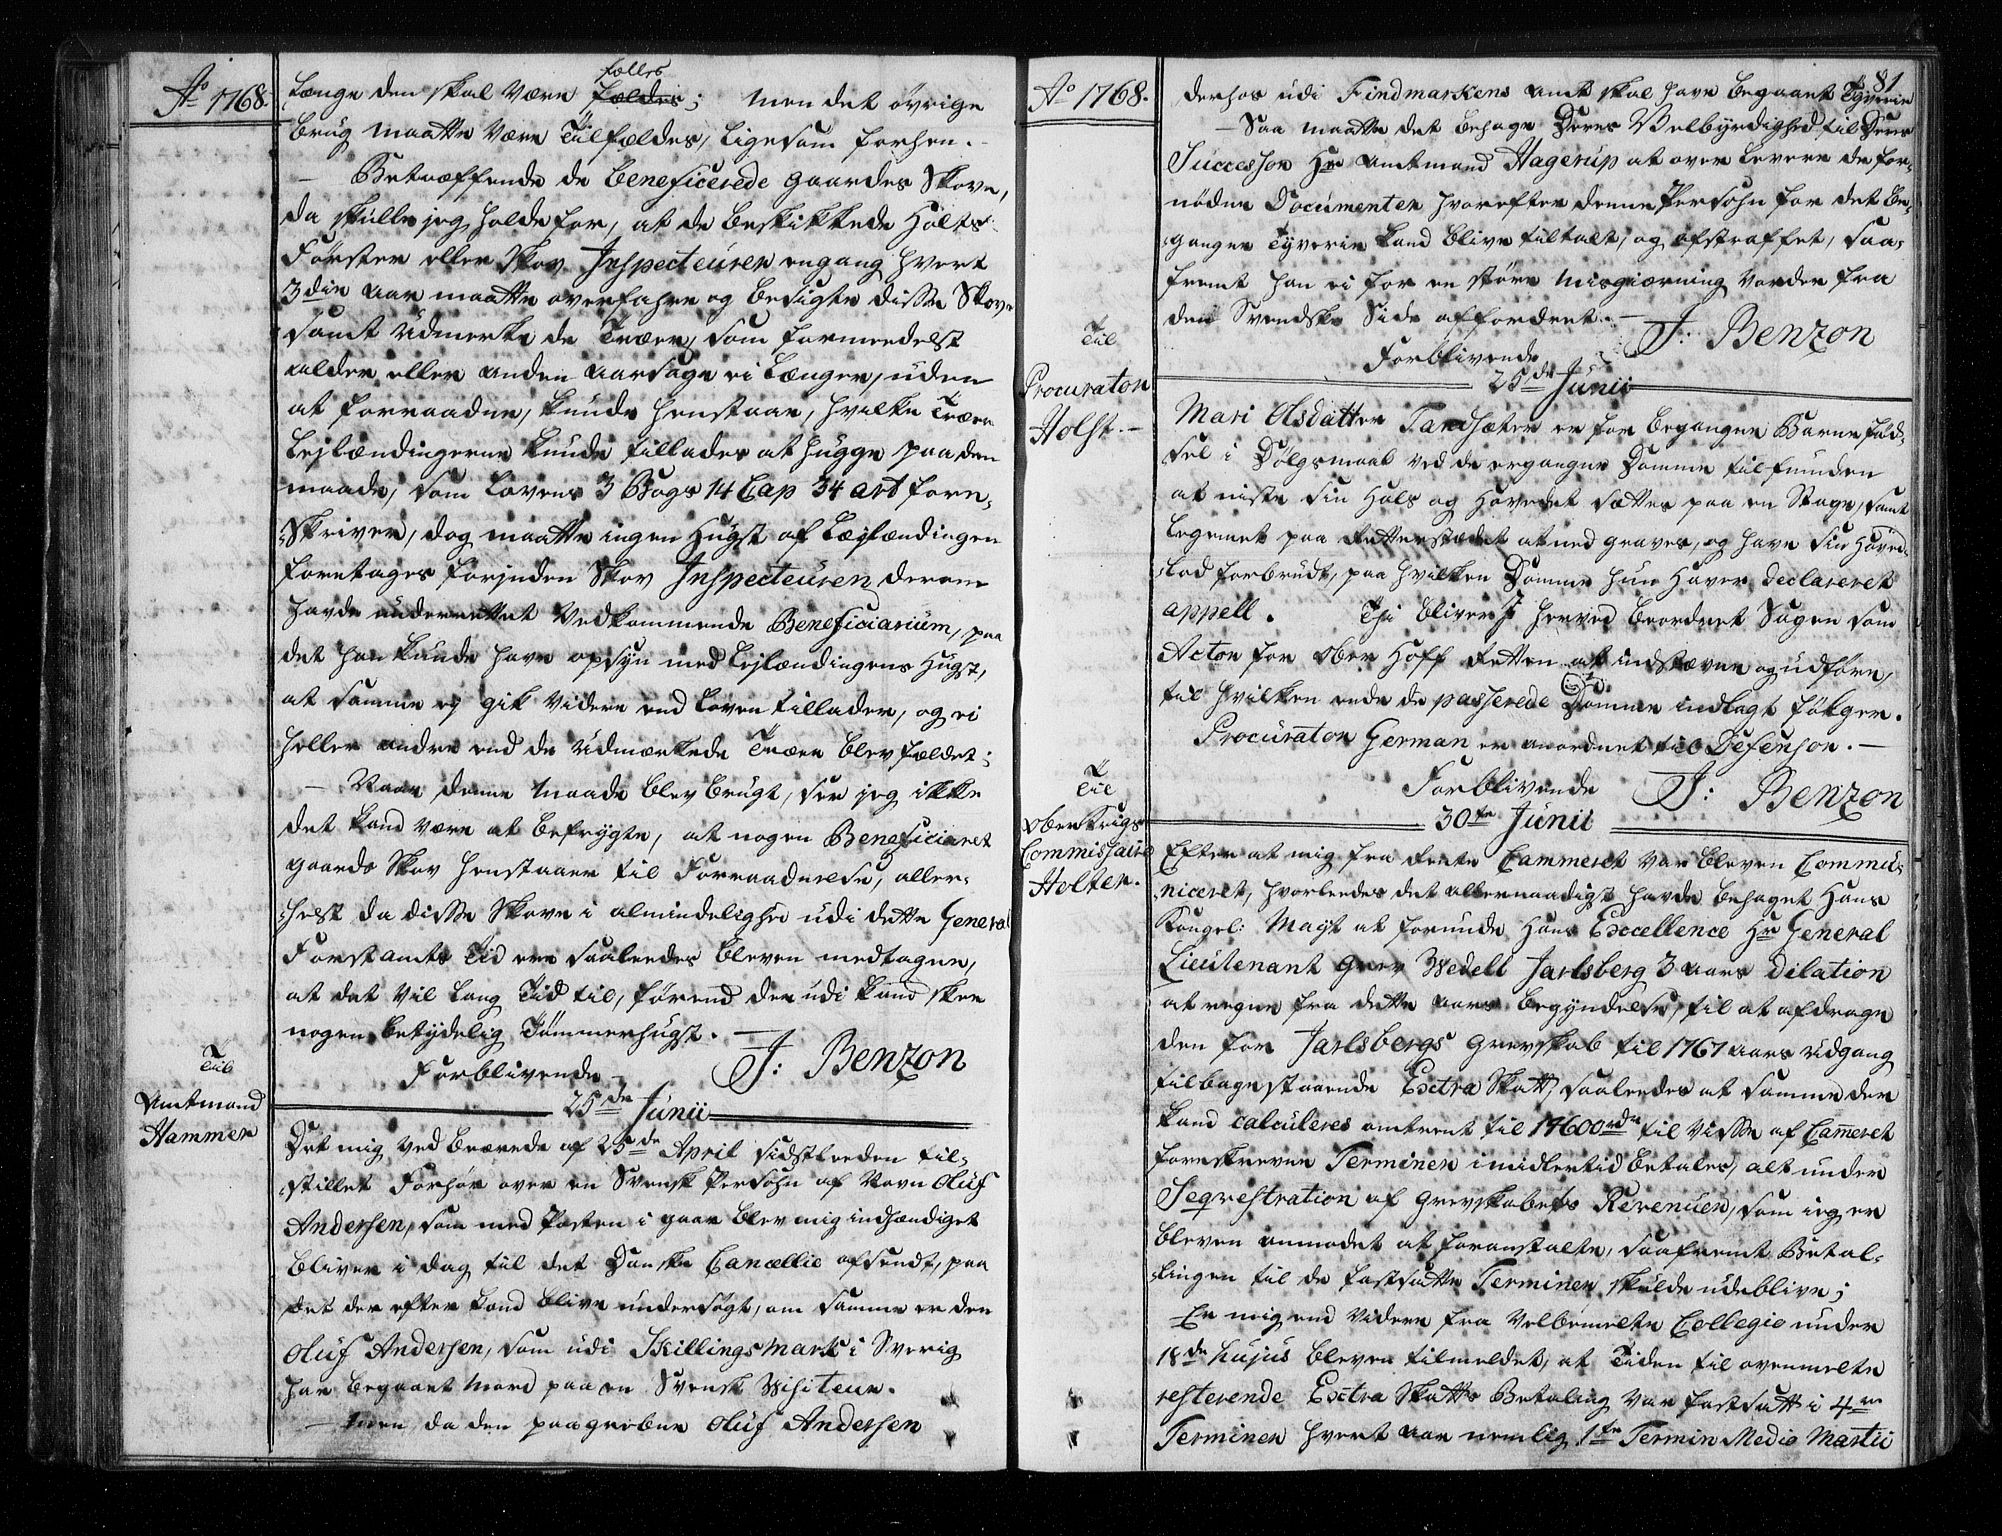 Ao 1768.
længe den skal være fældes; fælles men det øvrige
brug maatte være Tilfælles, ligesom forhen. -
- Betræffende de beneficerede gaardes Skove,
da skulle jeg holde for, at de beskikkede Holts-
Førster eller Skov Inspecteuren engang hvert
3die aar maatte overfahre og besigte disse Skove
samt udmerke de Træer, som formeedelst
alder eller anden aarsage ei længer, uden
at forraadne, kunde henstaae, hvilke Træer
Lejlændingerne kunde tillades at hugge paa den
maade, som Lovens 3 Bogs 14 Cap 34 art fore-
skriver, dog maatte ingen Hugst af Lejlændingen
foretages forinden Skov Inspecteuren derom
havde underrettet Vedkommende Beneficiarium, paa
det han kunde have opsyn med Lejlændingens Hugst,
at samme ej gik videre end Loven tillader, og ei
heller andre end de udmærkede Træer blev fældet;
- Naar denne maade blev brugt, seer jeg ikke
det kand være at befrygte, at nogen Beneficieret
gaards Skov henstaaer til Forraadnelse, aller-
helst da disse Skove i almindelighed udi dette General
Forstamts Tid ere saaleedes bleven medtagne,
at det vil lang Tid til, førend der udi kand skee
nogen betydelig Tømmerhugst. -
Forblivende - J: Benzon
25de Junii
Til
Amtmand
Hammer
Det mig ved brevede af 25de April sidstleeden til-
stillet Forhør over en Svensk Persohn af Navn Oluf
Andersen, som med Posten i gaar blev mig indhændiget
bliver i dag til det Danske Cancellie afsendt, paa
det der efter kand blive undersøgt, om samme er den
Oluf Andersen, som udi Skillingsmark i Sverig
har begaaet Mord paa en Svensk Visiteur.
- Men da den paagrebne Oluf Andersen
Ao 1768.
81
derhos udi Findmarkens amt skal have begaaet Tyverie
- Saa maatte det behage Deres Velbyrdighed til Deres
Successor Hr Amtmand Hagerup at over levere de for-
nødne Documenter hvorefter denne Persohn for det be-
gangne Tyverie kand blive tiltalt, og afstraffet, saa-
fremt han ei for en større misgierning vorder fra
den Svendske Side affordret. -
Forblivende J: Benzon
25de Junii
Til
Procurator
Holst. -
Mari Olsdatter Tandsæter er for begangne Barne fød-
sel i Dølgsmaal ved de ergangne Domme tilfunden
at miste sin Hals og Hovedet sættes paa en Stage, samt
Legemet paa Retterstædet at ned graves, og have sin Hoved-
lod forbrudt, paa hvilken Domme hun haver declareret
appell. Thi bliver I herved beordret Sagen som
Actor for Ober Hoff Retten at indstævne og udføre,
til hvilken ende de passerede 2 Domme indlagt følger.
Procurator German er anordnet til Defensor. -
Forblivende J: Benzon
30te Junii
Til
Ober Krigs
Commissaire
Holter.
Efter at mig fra Rente Cammeret var bleven Commu-
niceret, hvorleedes det allernaadigst havde behaget Hans
Kongel: Mayt at forunde Hans Excellence Hr General
Lieutenant Grev Wedell Jarlsberg 3 aars dilation
at regne fra dette aars begyndelse, til at afdrage
den for Jarlsbergs Grevskab til 1767 aars udgang
tilbagestaaende Extra Skatt, saaleedes at samme der
kand calculeres omtrent til 14600rdr til visse af Cameret
foreskrevne Terminer imidlertid betales, alt under
Seqvestration af Grevskabets Revenuer, som ieg er
bleven anmodet at foranstalte, saafremt Betal-
lingen til de fastsatte Terminer skulde udeblive;
Er mig end videre fra velbemelte Collegio under
18de hujus bleven tilmeldet, at Tiden til ovenmelte
resterende Extra Skatts Betaling var fastsatt i 4re
Terminer hvert aar nemlig 1te Termin Medio Martii